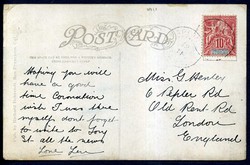 POST CARD
Hoping you will
have a good
time Coronation
wish I was there
myself, dont forget
to write to Tony
all the news
Love
Miss G. Henler
6 Pepler Rd
Old Kent Rd
London
England
10